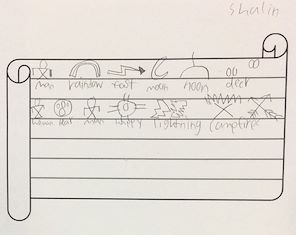 Shalin
man rainbow east moon noon deer
man happy lightning campfire